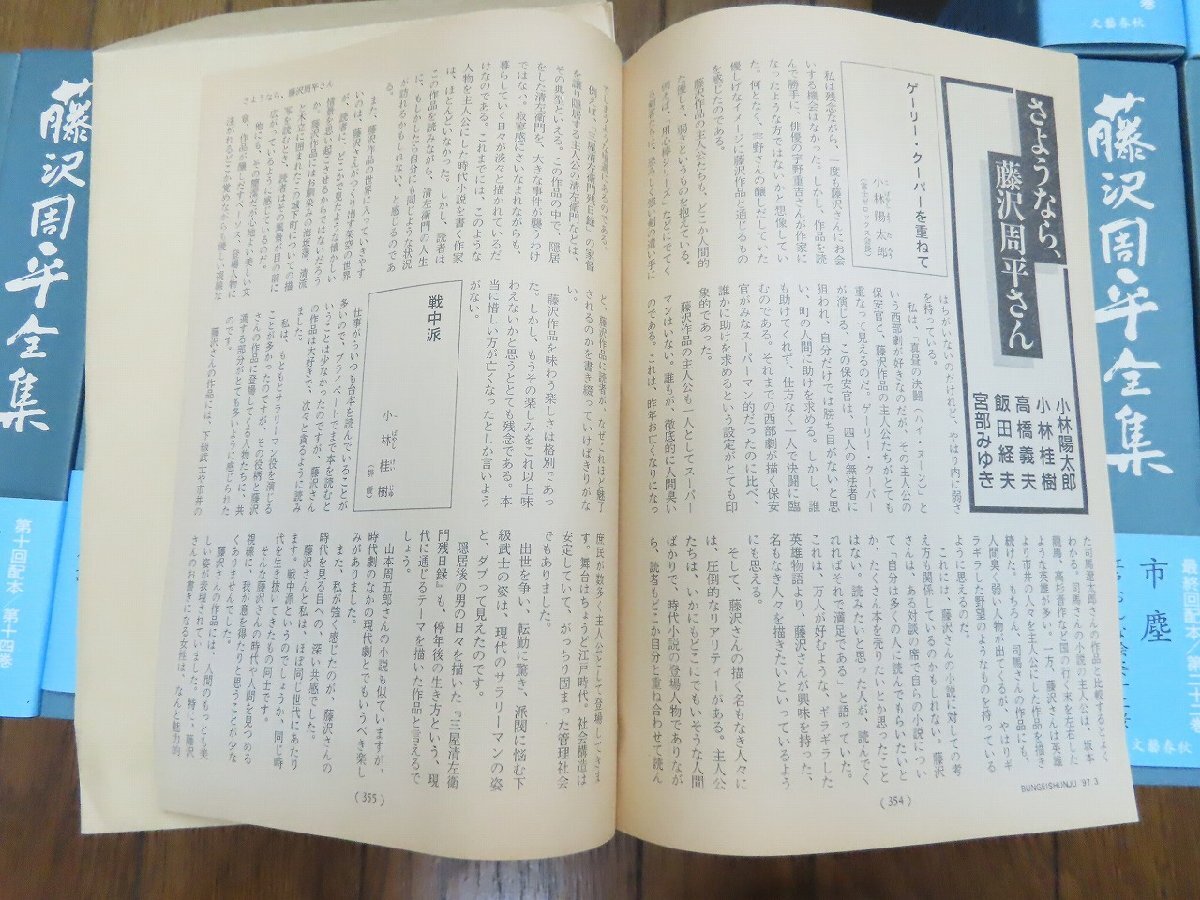 藤沢周平全集
市塵
文藝春秋
文藝春秋
さようなら、
藤沢周平さん
小林陽太郎
小林桂樹
高橋義夫
飯田経夫
宮部みゆき
ゲーリー・クーパーを重ねて
小林陽太郎
私は残念ながら、一度も藤沢さんにお会
いする機会はなかった。しかし、作品を読
んで勝手に、俳優の宇野重吉さんが作家に
なったような方ではないかと想像してい
た。何となく、宇野さんの醸しだしていた
優しげなイメージに藤沢作品と通じるもの
を感じたのである。
藤沢作品の主人公たちも、どこか人間的
な優しさ、弱さというものを抱えている。
はちがいないのだけれど、やはり内に弱さ
を持っている。
私は、『真昼の決闘(ハイ・ヌーン)』と
いう西部劇が好きなのだが、その主人公の
保安官と、藤沢作品の主人公たちがとても
重なって見えるのだ。ゲーリー・クーパー
が演じる、この保安官は、四人の無法者に
狙われ、自分だけでは勝ち目がないと思
い、町の人間に助けを求める。しかし、誰
も助けてくれず、仕方なく一人で決闘に臨
むのである。それまでの西部劇が描く保安
官がみなスーパーマン的だったのに比べ、
誰かに助けを求めるという設定がとても印
象的であった。
藤沢作品の主人公も一人としてスーパー
マンはいない。誰もが、徹底的に人間臭い
のである。これは、昨年お亡くなりになっ
た司馬遼太郎さんの作品と比較するとよく
わかる。司馬さんの小説の主人公は、坂本
龍馬、高杉晋作など国の行く末を左右した
ような英雄が多い。一方、藤沢さんは英雄
より市井の人々を主人公にした作品を描き
続けた。もちろん、司馬さんの作品にも、
人間臭く弱い人物が出てくるが、やはりギ
ラギラした野望のようなものを持っている
ように思えるのだ。
これには、藤沢さんの小説に対しての考
え方も関係しているのかもしれない。藤沢
さんは、ある対談の席で自らの小説につい
て「自分は多くの人に読んでもらいたいと
か、たくさん本を売りたいとか思ったこと
はない。読みたいと思った人が、読んでく
れればそれで満足である」と語っていた。
これは、万人が好むような、ギラギラした
英雄物語より、藤沢さんが興味を持った、
名もなき人々を描きたいといっているよう
にも思える。
そして、藤沢さんの描く名もなき人々に
は、圧倒的なリアリティーがある。主人公
たちは、いかにもどこにでもいそうな人間
ばかりで、時代小説の登場人物でありなが
ら、読者もどこか自分と重ね合わせて読ん
BUNGEISHUNJU '97.3
(354)
でしまうような普遍性があるのである。
例えば、『三屋清左衛門残日録』の家督
を譲り隠居する主人公の清左衛門などは、
その典型といえる。この作品の中で、隠居
をした清左衛門を、大きな事件が襲うわけ
ではない。寂寥感にさいなまれながらも、
暮らしていく日々が淡々と描かれているだ
けなのである。これまでには、このような
人物を主人公にした時代小説を書く作家
は、ほとんどいなかった。しかし、読者は
この作品を読みながら、清左衛門の人生
に、もしかしたら自分にも同じような状況
が訪れるかもしれない、と感じるのであ
る。
また、藤沢作品の世界に入っていきやす
いのは、藤沢さんがつくり出す架空の世界
が、読者に、どこかで見たような懐かしい
情景を思い起こさせるからではないだろう
か。藤沢作品にはお馴染みの海坂藩。清流
と木立に囲まれたこの城下町についての描
写を読むとき、読者はその風景が目の前に
広がっているように感じているのだ。
さようなら、藤沢周平さん
と、藤沢作品に読者が、なぜこれほど魅了
されるのかを書き綴っていけばきりがな
い。
藤沢作品を味わう楽しさは格別であっ
た。しかし、もうその楽しみをこれ以上味
わえないかと思うととても残念である。本
当に惜しい方が亡くなったとしか言いよう
がない。
戦中派
小林桂樹
仕事がらいつも台本を読んでいることが
多いので、プライベートでまで本を読むと
いうことは少なかったのですが、藤沢さん
の作品は大好きで、次々と貪るように読み
ました。
私は、もともとサラリーマン役を演じる
ことが多かったのですが、その役柄と藤沢
さんの作品に登場してくる人物たちに、共
通する部分がとても多いように感じられた
のです。
藤沢さんの作品には、下級武士や市井の
庶民が数多く主人公として登場してきま
す。舞台はちょうど江戸時代。社会構造は
安定していて、がっちり固まった管理社会
でもありました。
出世を争い、転勤に驚き、派閥に悩む下
級武士の姿は、現代のサラリーマンの姿
と、ダブって見えたのです。
隠居後の男の日々を描いた『三屋清左衛
門残日録』も、停年後の生き方という、現
代に通じるテーマを描いた作品と言えるで
しょう。
山本周五郎さんの小説も似ていますが、
時代劇のなかの現代劇とでもいうべき楽し
みがありました。
また、私が強く感じたのが、藤沢さんの
時代を見る目への、深い共感でした。
藤沢さんと私は、ほぼ同じ世代にあたり
ます。戦中派というのでしょうか、同じ時
代を生き抜いてきたもの同士です。
そんな藤沢さんの時代や人間を見つめる
視線に、我が意を得たりと思うことが少な
くありませんでした。
藤沢さんの作品には、人間のもっとも美
しい姿が表現されていました。特に、藤沢
さんのお書きになる女性は、なんと魅力的
(355)
藤沢周平全集
第十回配本 第十四巻